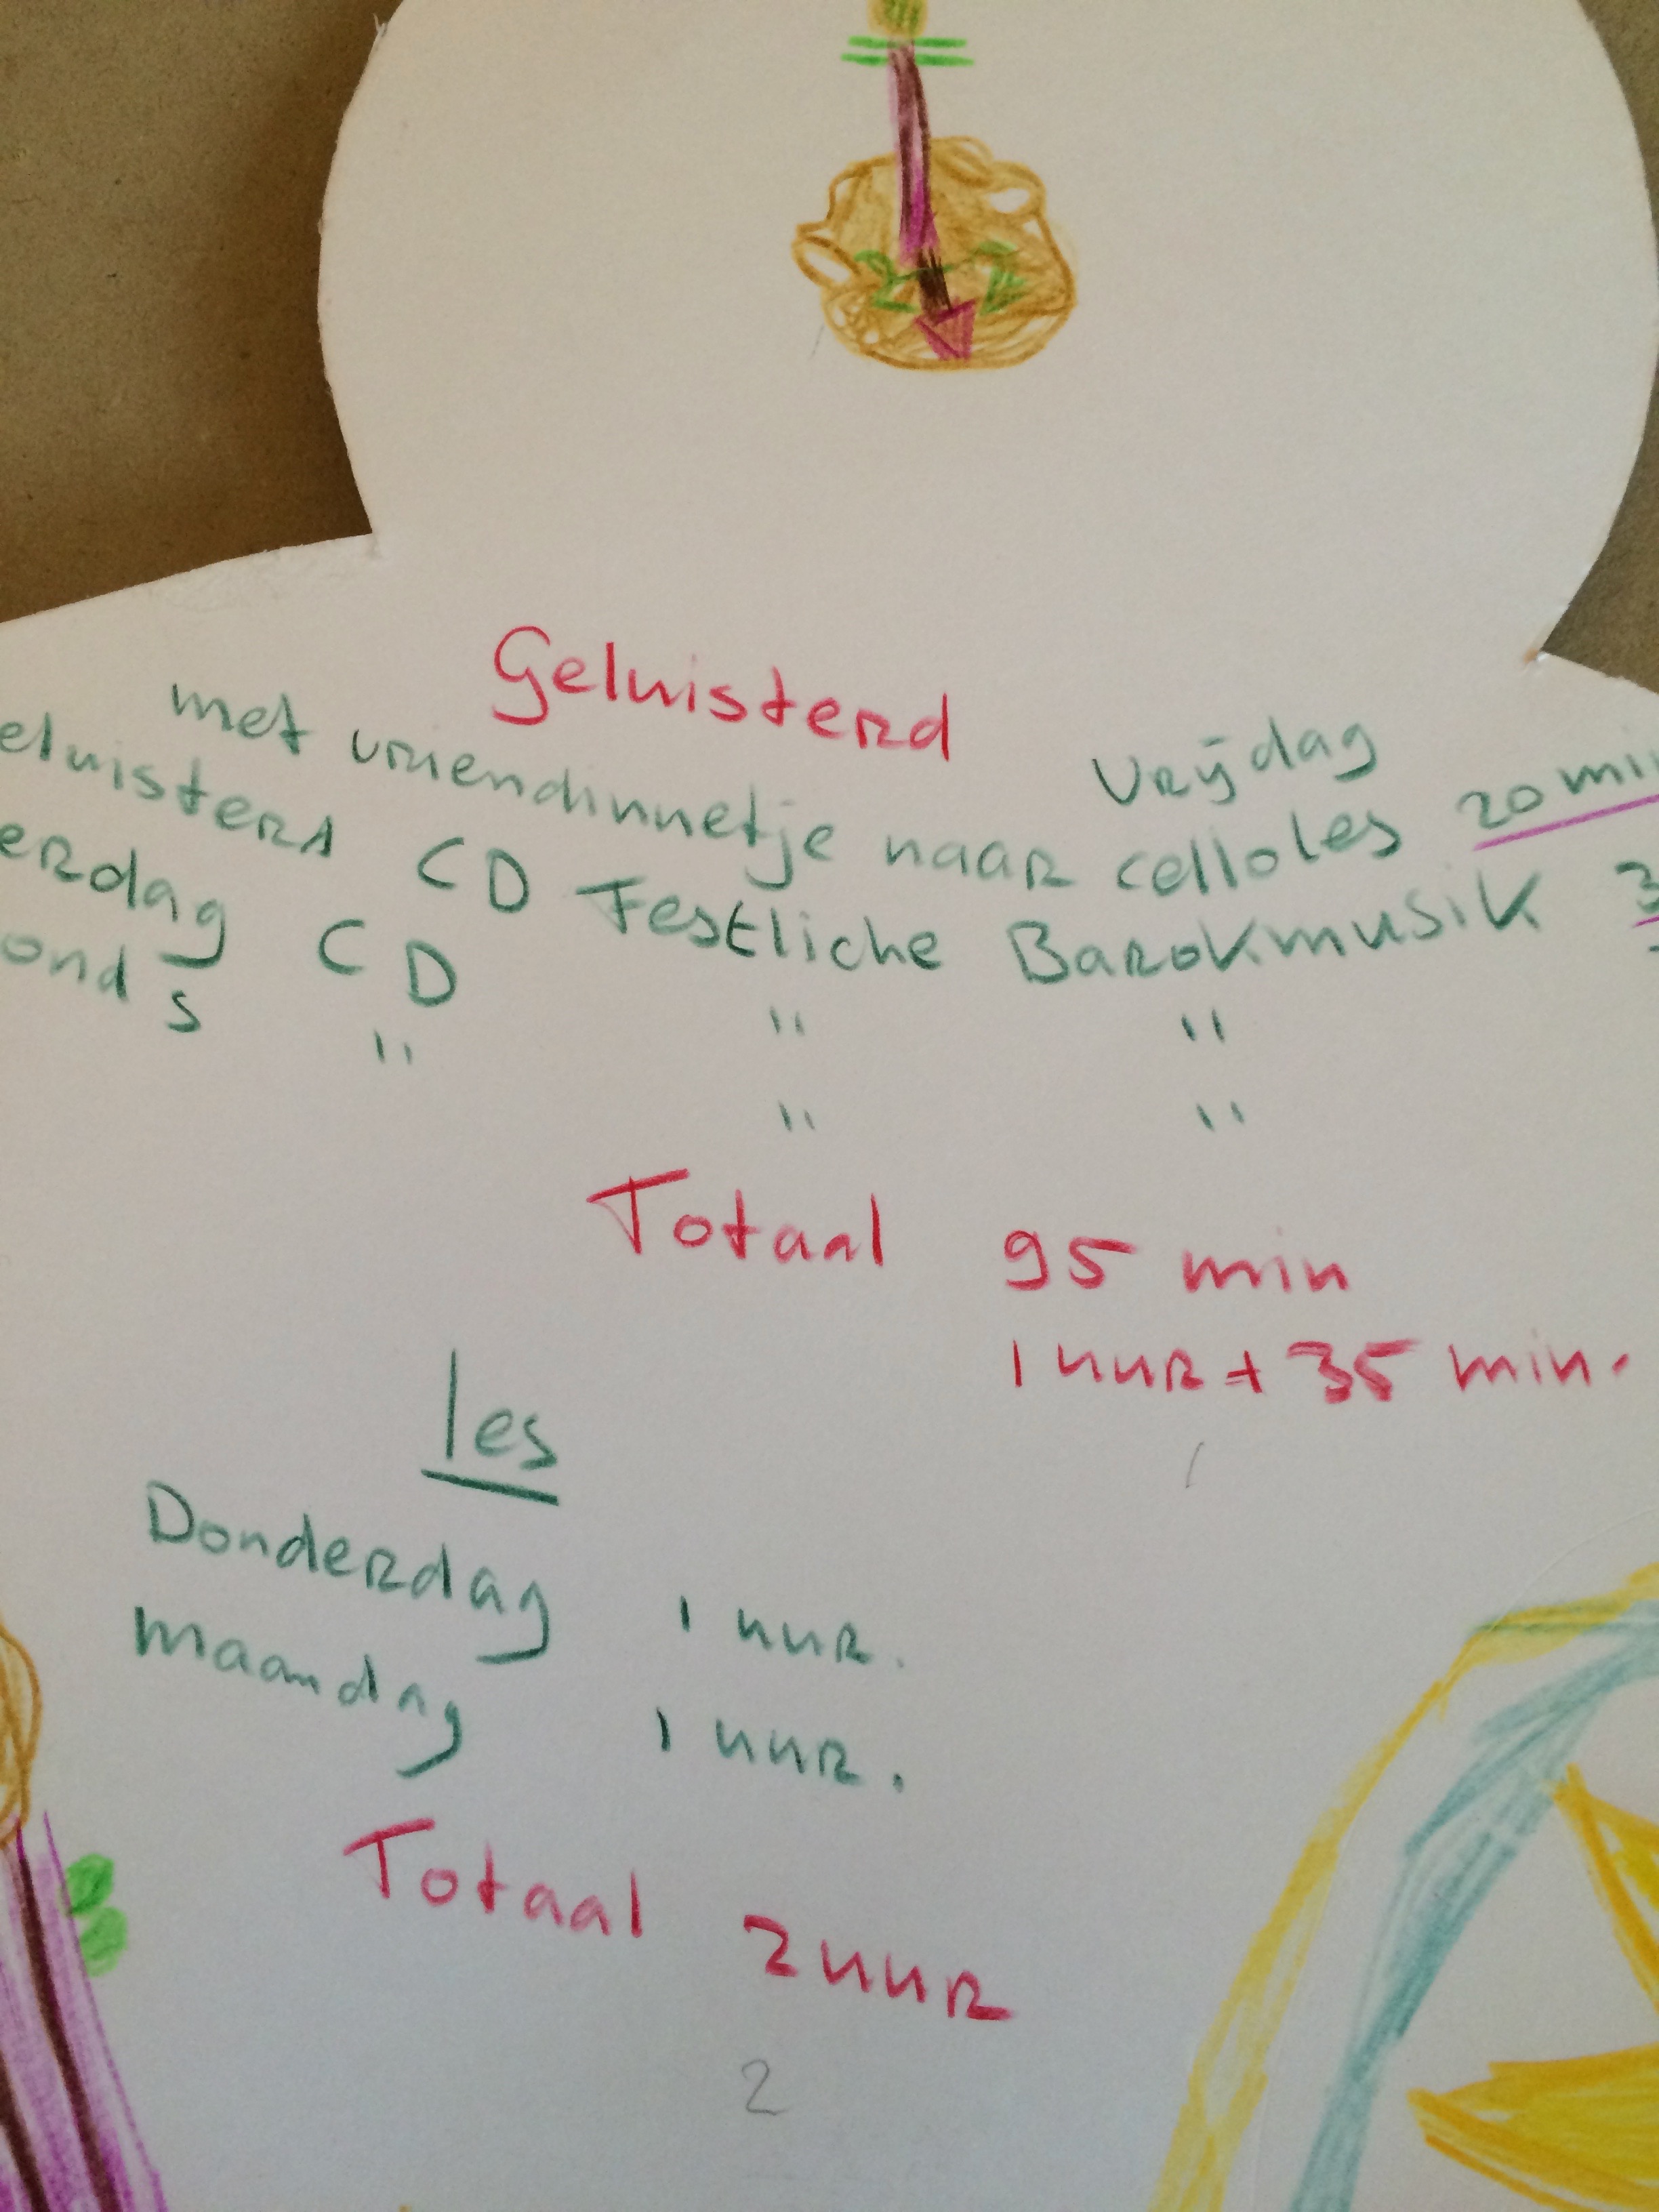 Geluisterd
vrijdag
met vriendinnetje naar celloles 20 min
eluisterd CD Festliche Barokmusik 3
erdag CD " "
onds " " "
Totaal 95 min
1 uur + 35 min.
les
Donderdag 1 uur.
maandag 1 uur.
Totaal 2 uur
2